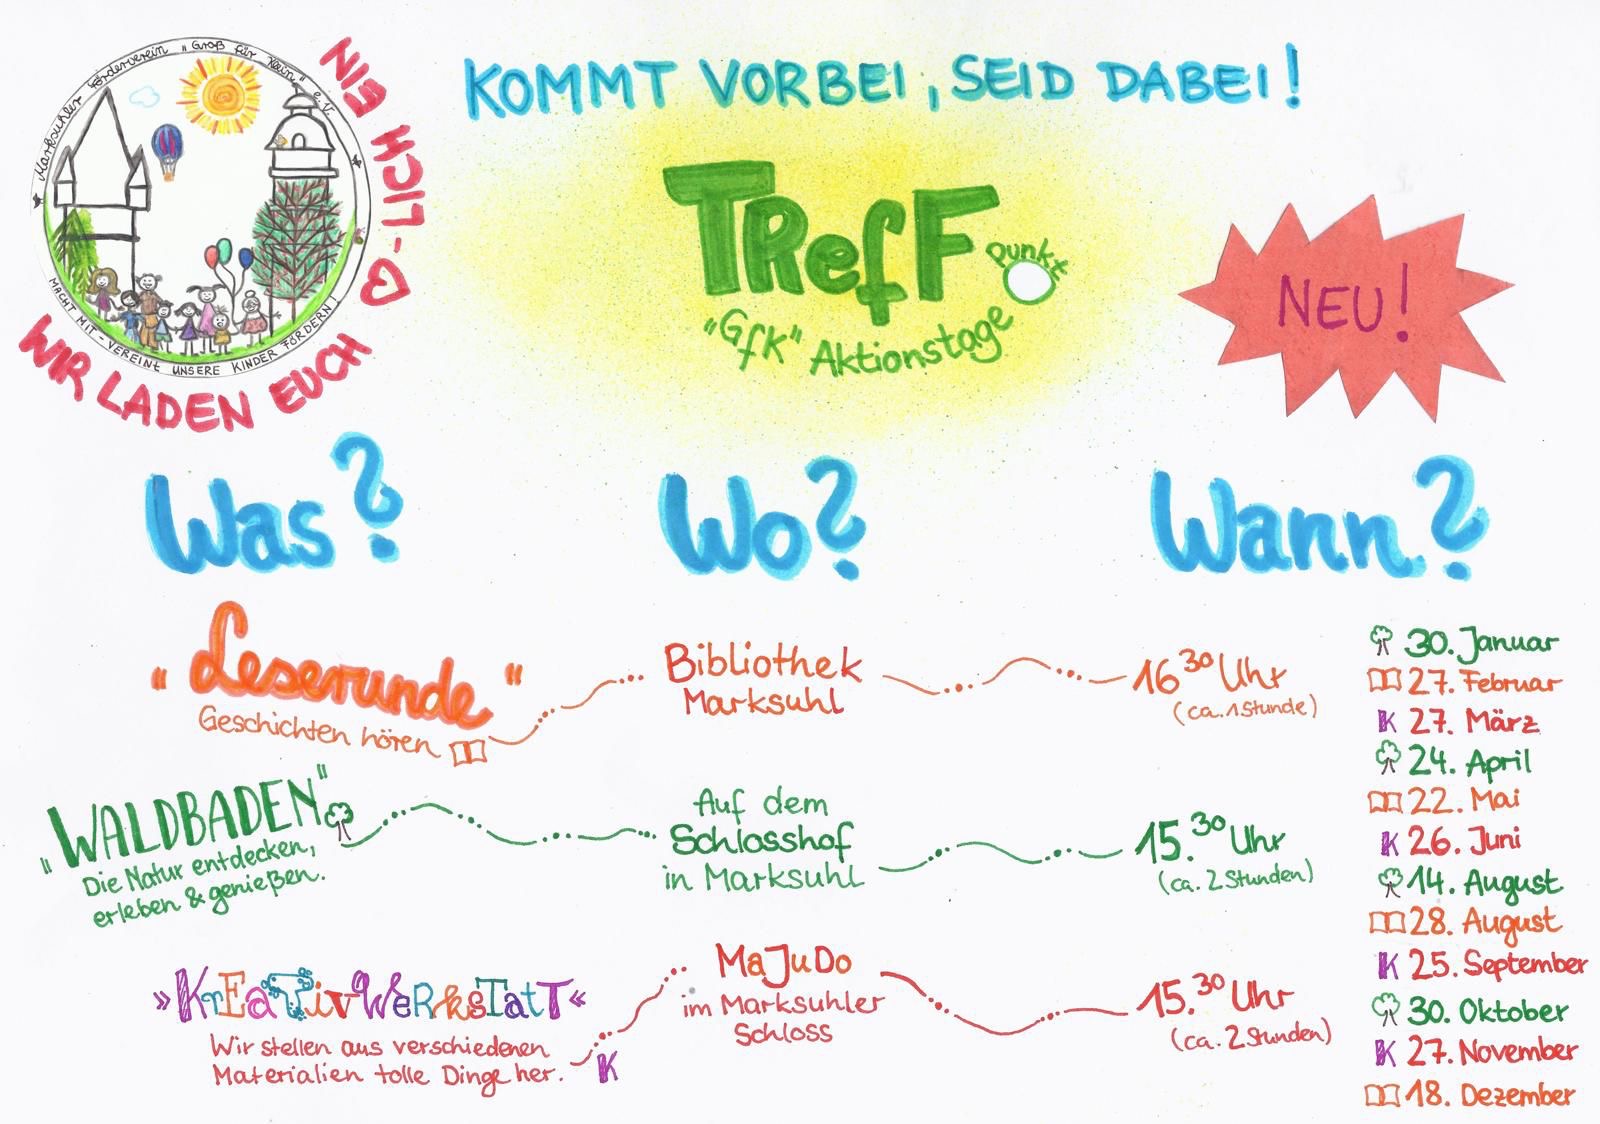 Marksuhler Förderverein "Groß für Klein" e.V.
MACHT MIT - VEREINT UNSERE KINDER FÖRDERN!
WIR LADEN EUCH ♡-LICH EIN
KOMMT VORBEI, SEID DABEI!
TReFF
punkt
"GfK" Aktionstage
NEU!
Was?
Wo?
Wann?
"Leserunde"
Geschichten hören
Bibliothek
Marksuhl
16³⁰ Uhr
(ca. 1 Stunde)
"WALDBADEN"
Die Natur entdecken,
erleben & genießen.
Auf dem
Schlosshof
in Marksuhl
15.³⁰ Uhr
(ca. 2 Stunden)
»KrEaTivWeRksTatT«
Wir stellen aus verschiedenen
Materialien tolle Dinge her.
K
MaJuDo
im Marksuhler
Schloss
15.³⁰ Uhr
(ca. 2 Stunden)
30. Januar
27. Februar
K 27. März
24. April
22. Mai
K 26. Juni
14. August
28. August
K 25. September
30. Oktober
K 27. November
18. Dezember